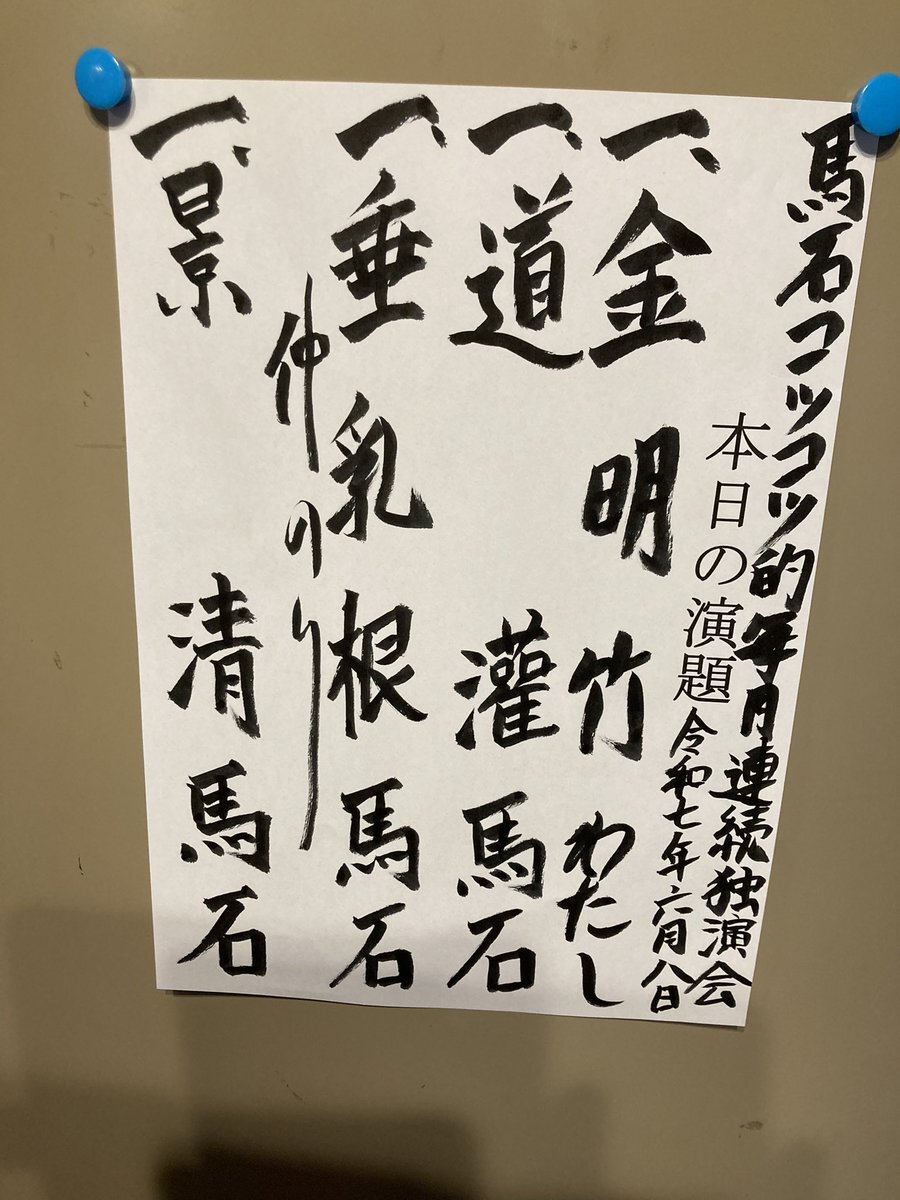 馬石コツコツ的毎月連続独演会
本日の演題 令和七年六月八日
一、金明竹 わたし
一、道灌 馬石
一、垂乳根 馬石
仲のり
一、景清 馬石